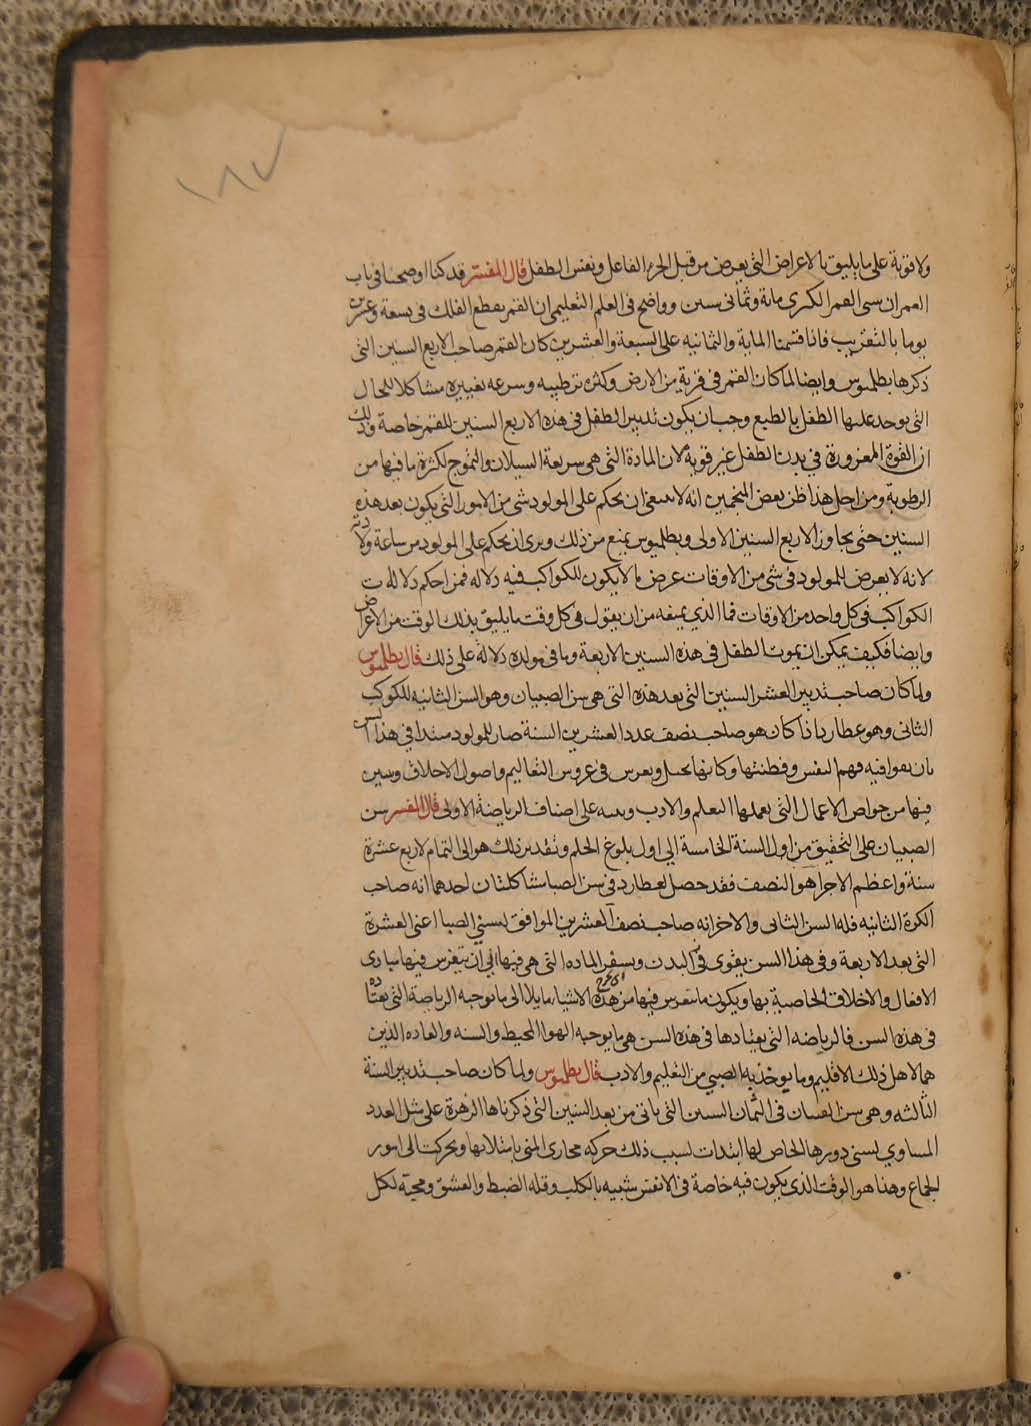 ١٨٧
ولا قوية على ما يليق بالاعراض التي يعرض من قبل الجزء الفاعل ونفس الطفل قال المفسر قد كنا اوضحنا في باب
العمر ان سني القمر الكبرى مائة وثماني سنين وواضح في العلم التعليمي ان القمر يقطع الفلك في سبعة وعشرين
يوما بالتقريب فاذا قسمنا الماية والثمانيه على السبعة والعشرين كان القمر صاحب الاربع السنين التي
ذكرها بطلميوس وايضا لما كان القمر في قربه من الارض وكثرة ترطيبه وسرعه تغييره مشاكلا للحال
التي يوجد عليها الطفل بالطبع وجب ان يكون تدبير الطفل في هذه الاربع السنين للقمر خاصة وذلك
ان القوة المغزورة في بدن الطفل غير قوية لان المادة التي هي سريعة السيلان والتموج لكثرة ما فيها من
الرطوبة ومن اجل هذا ظن بعض المنجمين انه لا ينبغي ان يحكم على المولود شي من الامور التي يكون بعد هذه
السنين حتى يجاوز الاربع السنين الاولى وبطلميوس يمنع من ذلك ويرى ان يحكم على المولود من ساعة ولادته
لانه لا يعرض للمولود في شي من الاوقات عرض ما لا يكون للكواكب فيه دلاله فمن احكم دلالات
الكواكب في كل واحد من الاوقات فما الذي يمنعه من ان يقول في كل وقت ما يليق بذلك الوقت من الاعراض
وايضا فكيف يمكن ان يموت الطفل في هذه السنين الاربعة وما في مولده دلالة على ذلك قال بطلميوس
ولما كان صاحب تدبير العشر السنين التي بعد هذه التي هي سن الصبيان وهو السن الثانيه للكوكب
الثاني وهو عطارد اذا كان هو صاحب نصف عدد العشرين السنة صار للمولود مبتدا في هذا السن
بان يقوا فيه فهم النفس وفطنتها وكانها يحل ويغرس في غروس التعاليم واصول الاخلاق ويبين
فيها من خواص الاعمال التي يعملها التعلم والادب وينبه على اصناف الرياضة الاولى قال المفسر سن
الصبيان على التحقيق من اول السنة الخامسة الى اول بلوغ الحلم وتقدير ذلك هو الى التمام لاربع عشرة
سنة واعظم الاجزا هو النصف فقد حصل لعطارد في سن الصبا مشاكلتان احدهما انه صاحب
الكرة الثانيه فله السن الثاني والاخر انه صاحب نصف العشرين الموافق لسني الصبا اعني العشرة
التي بعد الاربعة وفي هذا السن يقوى في البدن ويستقر الماده التي هي فيها الى ان يتغرس فيها مبادى
الافعال والاخلاق الخاصية بها ويكون ما يتغرس فيها من هذه الاشياء مايلا الى ما توجبه الرياضة التي يعتاده
في هذه السن فالرياضه التي يعتادها في هذه السن هي ما يوجبه الهوا المحيط والسنه والعاده الذين
هما لاهل ذلك الاقليم وما يوخذ به الصبي من التعليم والادب قال بطلميوس ولما كان صاحب تدبير السنة
الثالثه وهي سن الفتيان في الثمان السنين التي ياتي من بعد السنين التي ذكرناها الزهرة على مثل العدد
المساوي لسني دورها الخاص لها ابتدات لسبب ذلك حركه مجارى المني بامتلائها ويحركت الى امور
الجماع وهنا هو الوقت الذي يكون فيه خاصة في الانفس شبيه بالكلب وقله الضبط والعشق ومحبة لكل